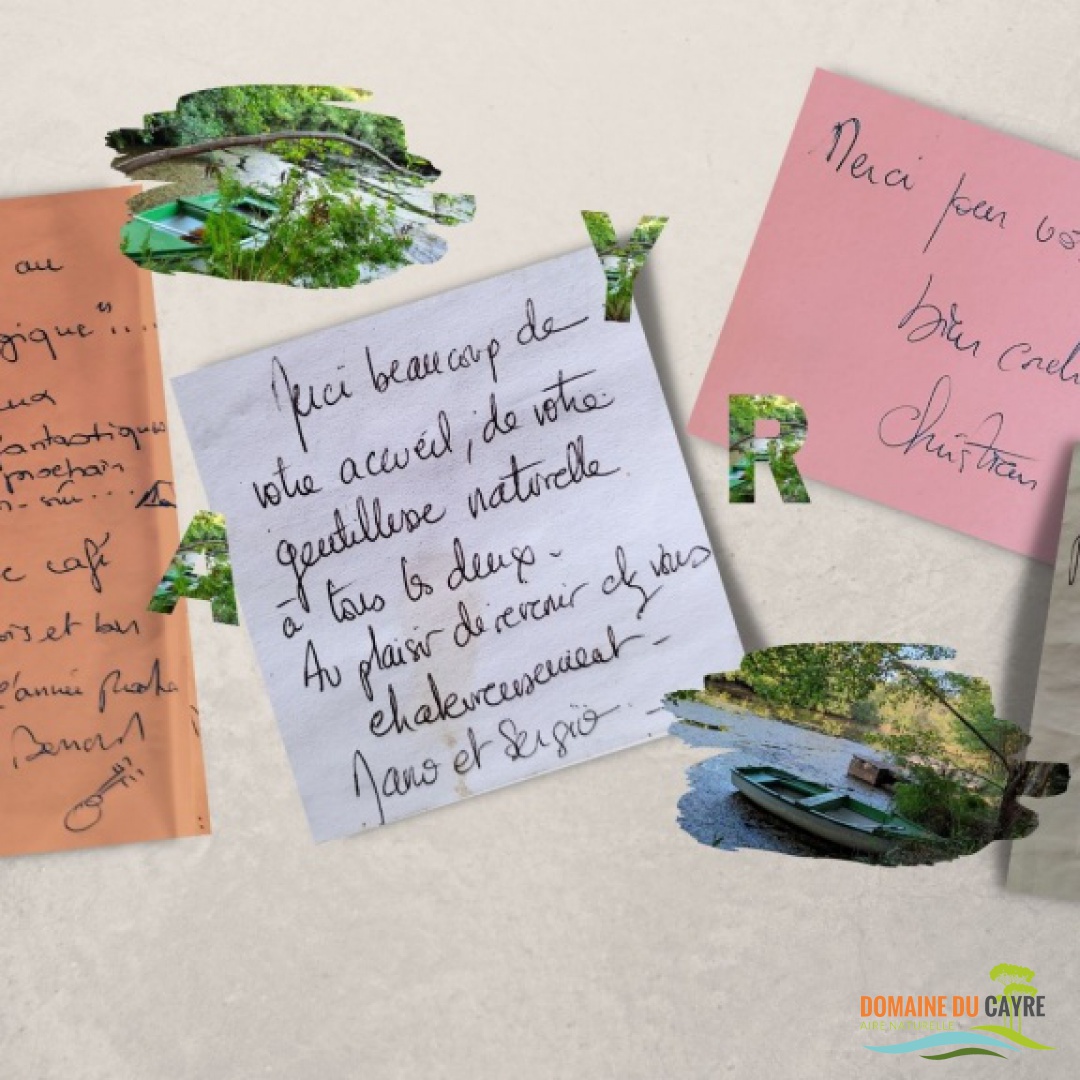 au
gique"....
ux
fantastiques
prochain
c café
et bon
l'année
Bernard
Merci beaucoup de
votre accueil, de votre
gentillesse naturelle
à tous les deux -
Au plaisir de revenir chez vous
chaleureusement -
Jano et Sergio -
Merci pour vo
bien cordi
Christian
A
Y
R
DOMAINE DU CAYRE